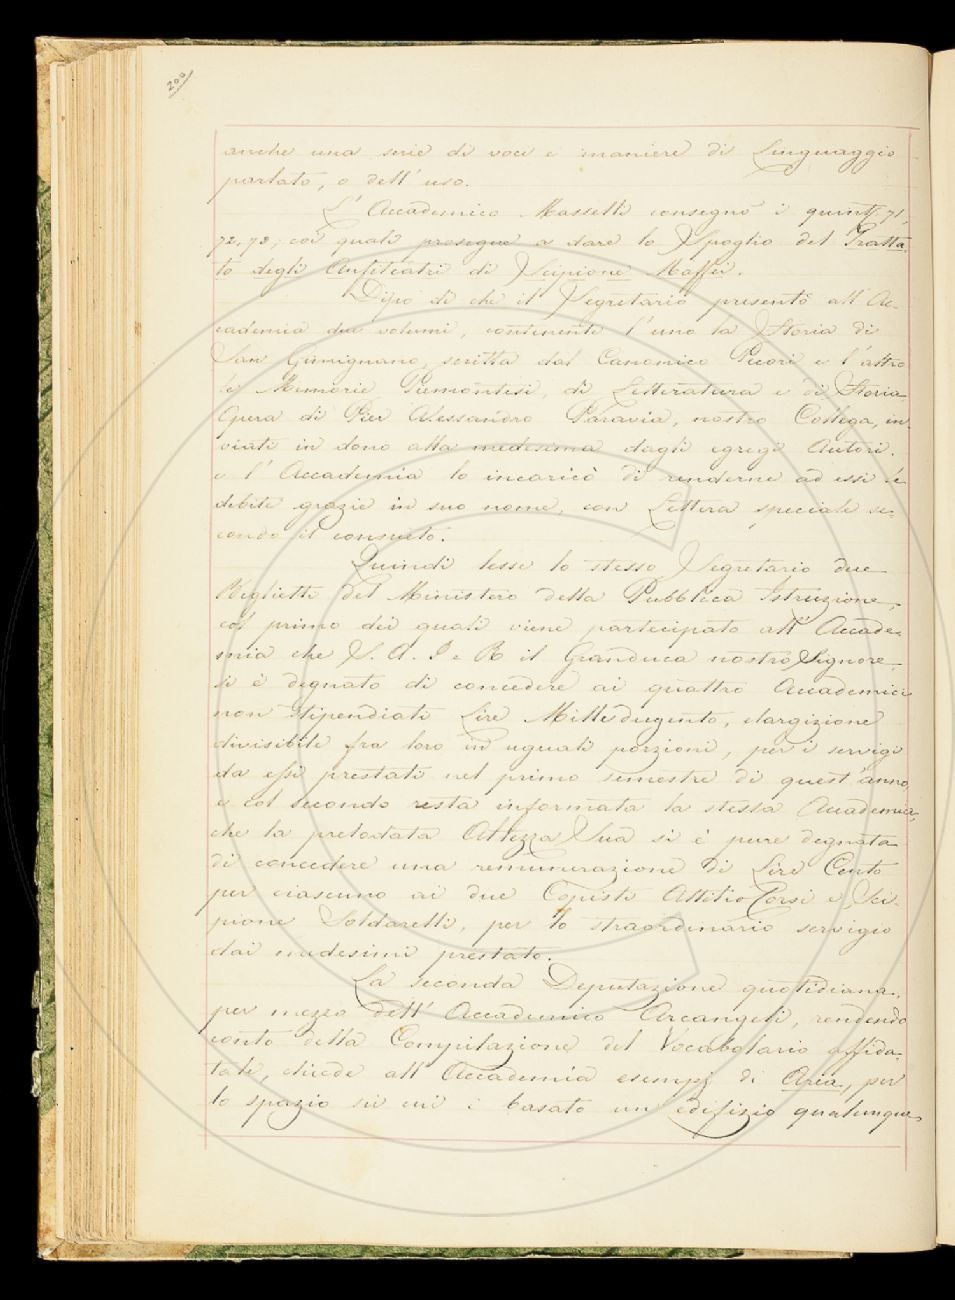 200
anche una serie di voci e maniere di Linguaggio
parlato, o dell'uso.
L'Accademico Masselli consegnò i quint.i 71,
72, 73; coi quali prosegue a dare lo Spoglio del Tratta-
to degli Anfiteatri di Scipione Maffei.
Dipo di che il Segretario presentò all'Ac-
cademia due volumi, contenenti l'uno la Storia di
San Gimignano, scritta dal Canonico Pecori e l'altro
le Memorie Piemontesi, di Letteratura e di Storia
Opera di Pier Alessandro Paravia, nostro Collega, in-
viati in dono alla medesima dagli egregi Autori.
e l'Accademia lo incaricò di renderne ad essi le
debite grazie in suo nome, con Lettera speciale se-
condo il consueto.
Quindi lesse lo stesso Segretario due
Biglietti del Ministero della Pubblica Istruzione,
col primo dei quali viene partecipato all'Accade-
mia che S. A. I e R il Granduca nostro Signore,
si è degnato di concedere ai quattro Accademici
non stipendiati Lire Mille dugento, elargizione
divisibile fra loro in uguali porzioni, per i servigi
da essi prestati nel primo semestre di quest'anno,
e col secondo resta informata la stessa Accademia,
che la prelodata Altezza Sua si è pure degnata
di concedere una remunerazione di Lire Cento
per ciascuno ai due Copisti Attilio Corsi e Sci-
pione Soldarelli, per lo straordinario servigio
dai medesimi prestato.
La seconda Deputazione quotidiana,
per mezzo dell'Accademico Arcangeli, rendendo
conto della Compilazione del Vocabolario affida-
tale, chiede all'Accademia esempj di Aria, per
lo spazio su cui è basato un edifizio qualunque,